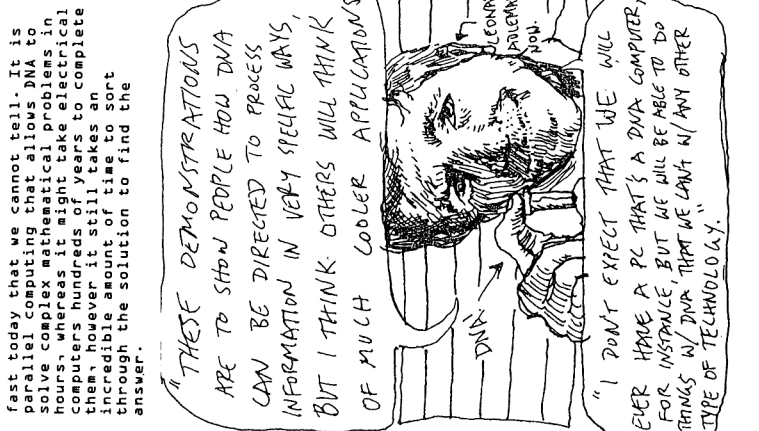 fast today that we cannot tell. It is
parallel computing that allows DNA to
solve complex mathematical problems in
hours, whereas it might take electrical
computers hundreds of years to complete
them, however it still takes an
incredible amount of time to sort
through the solution to find the
answer.
"THESE DEMONSTRATIONS
ARE TO SHOW PEOPLE HOW DNA
CAN BE DIRECTED TO PROCESS
INFORMATION IN VERY SPECIFIC WAYS,
BUT I THINK OTHERS WILL THINK
OF MUCH COOLER APPLICATIONS
LEONA
ADLEMA
NOW.
DNA
"I DON'T EXPECT THAT WE WILL
EVER HAVE A PC THAT'S A DNA COMPUTER,
FOR INSTANCE, BUT WE WILL BE ABLE TO DO
THINGS W/ DNA THAT WE CAN'T W/ ANY OTHER
TYPE OF TECHNOLOGY."